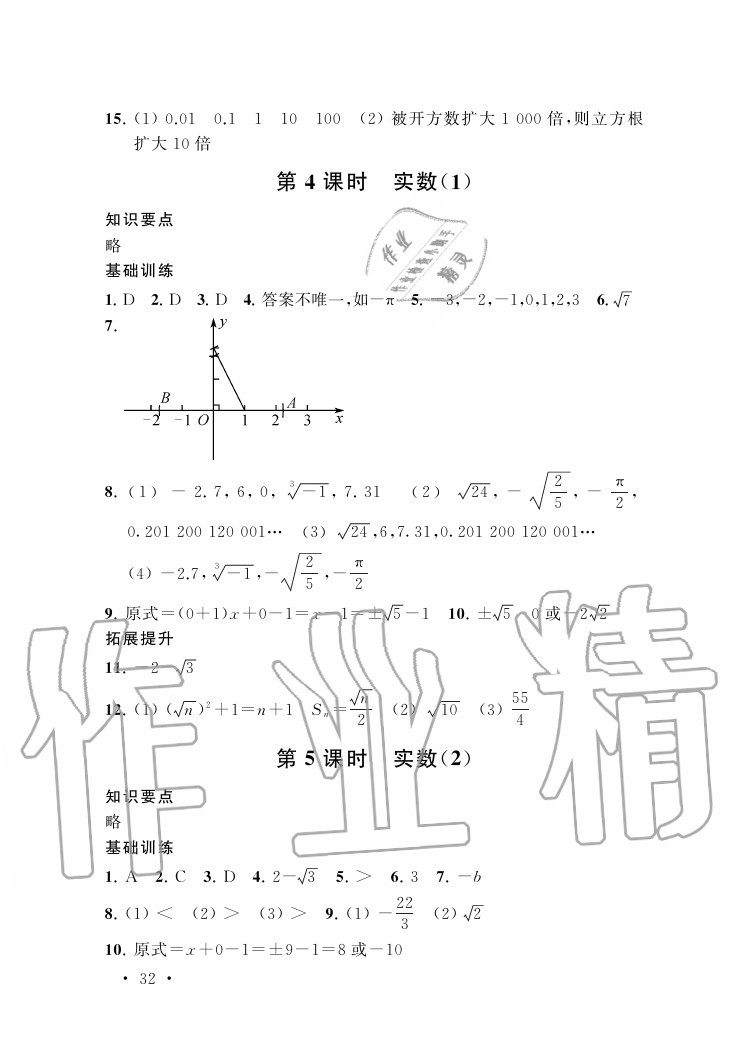 15. (1) 0.01 0.1 1 10 100 (2) 被开方数扩大 1 000 倍,则立方根
扩大 10 倍
第 4 课时 实数(1)
知识要点
略
基础训练
1. D 2. D 3. D 4. 答案不唯一,如－π 5. －3,－2,－1,0,1,2,3 6. √7
7.
y
B A
－2 －1 O 1 2 3 x
8. (1) － 2.7, 6, 0, ∛－1, 7.31 (2) √24, － √(2/5), － π/2,
0.201 200 120 001… (3) √24,6,7.31,0.201 200 120 001…
(4) －2.7, ∛－1,－√(2/5),－π/2
9. 原式＝(0＋1)x＋0－1＝x－1＝±√5－1 10. ±√5 0 或－2√2
拓展提升
11. －2－√3
12. (1) (√n)²＋1＝n＋1 Sₙ＝√n/2 (2) √10 (3) 55/4
第 5 课时 实数(2)
知识要点
略
基础训练
1. A 2. C 3. D 4. 2－√3 5. ＞ 6. 3 7. －b
8. (1)＜ (2)＞ (3)＞ 9. (1)－22/3 (2)√2
10. 原式＝x＋0－1＝±9－1＝8 或－10
· 32 ·
作业精
作业
作业检查小助手
精灵